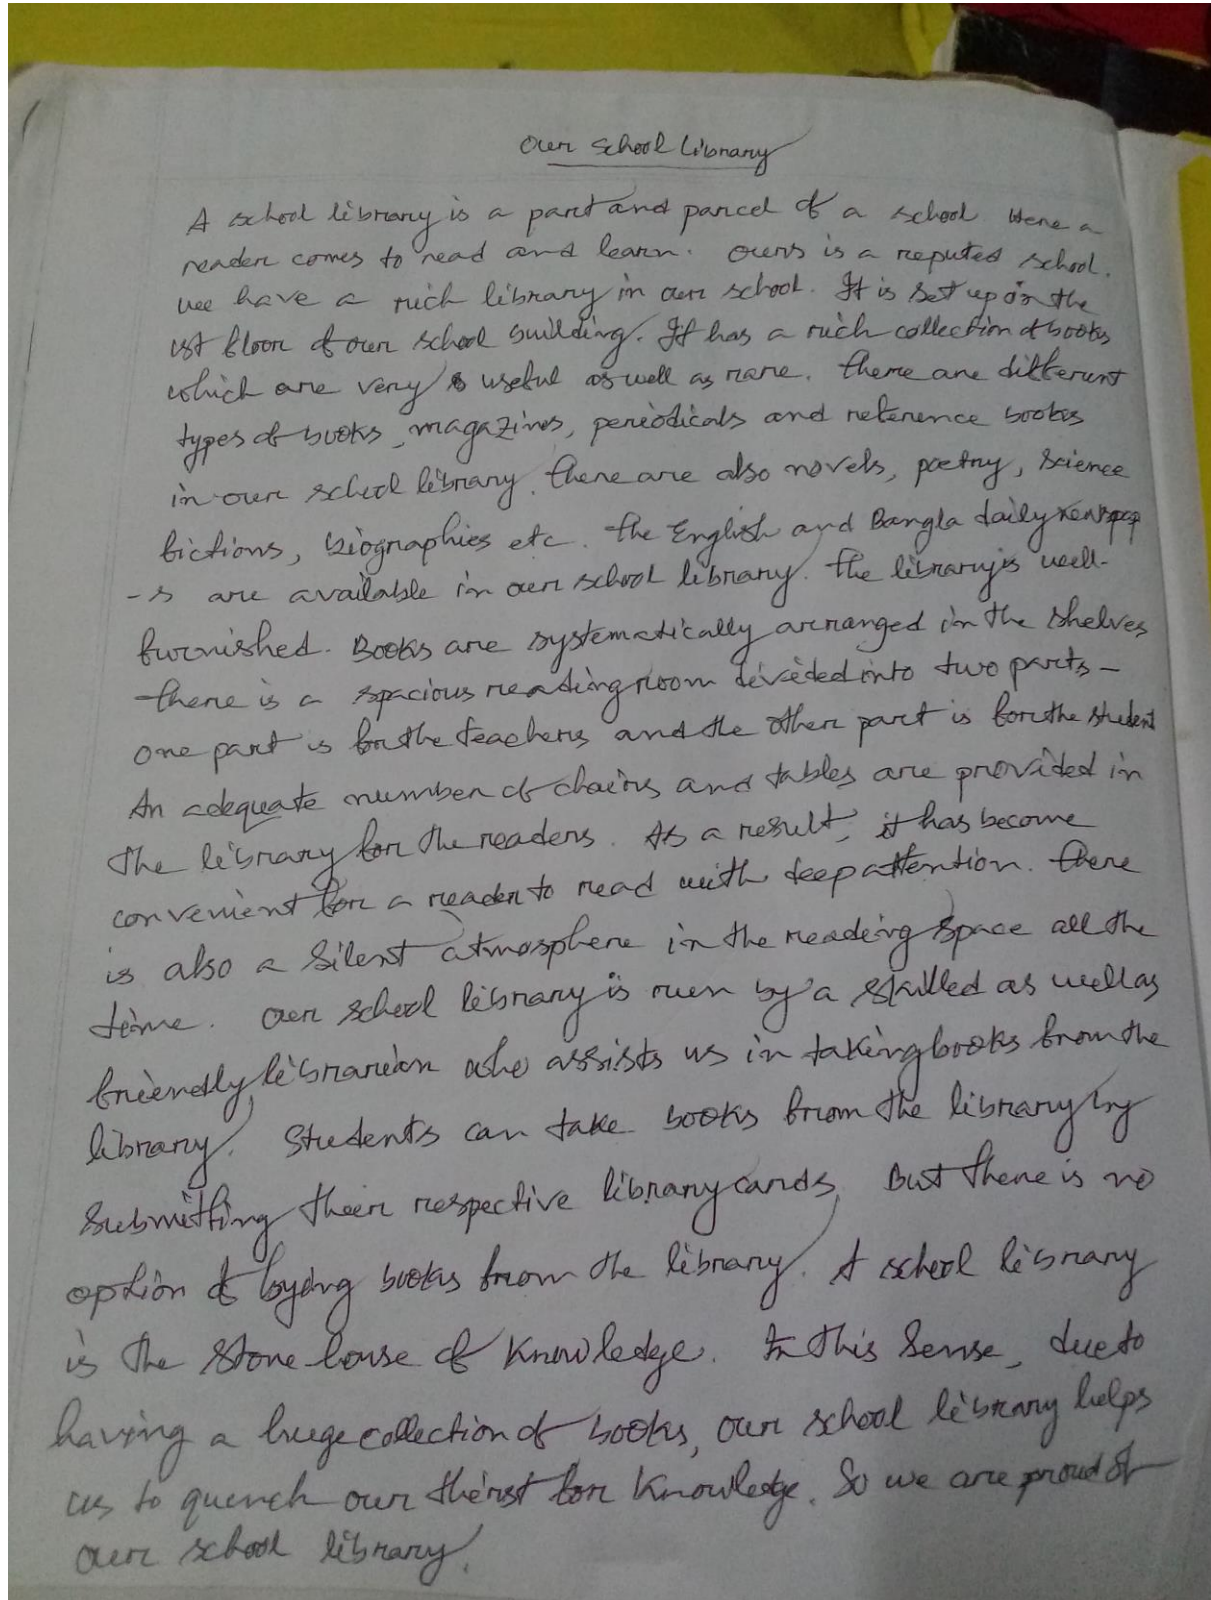 Our School Library
A school library is a part and parcel of a school. Here a
reader comes to read and learn. Ours is a reputed school.
we have a rich library in our school. It is set up in the
1st floor of our school building. It has a rich collection of books
which are very useful as well as rare. There are different
types of books, magazines, periodicals and reference books
in our school library. There are also novels, poetry, science
fictions, biographies etc. The English and Bangla daily newspap
-s are available in our school library. The library is well-
furnished. Books are systematically arranged in the shelves
There is a spacious reading room divided into two parts -
one part is for the teachers and the other part is for the student
An adequate number of chairs and tables are provided in
the library for the readers. As a result, it has become
convenient for a reader to read with deep attention. There
is also a silent atmosphere in the reading space all the
time. Our school library is run by a skilled as well as
friendly librarian who assists us in taking books from the
library. Students can take books from the library by
submitting their respective library cards. But there is no
option of bying books from the library. A school library
is the store house of knowledge. In this sense, due to
having a huge collection of books, our school library helps
us to quench our thirst for knowledge. So we are proud of
our school library.